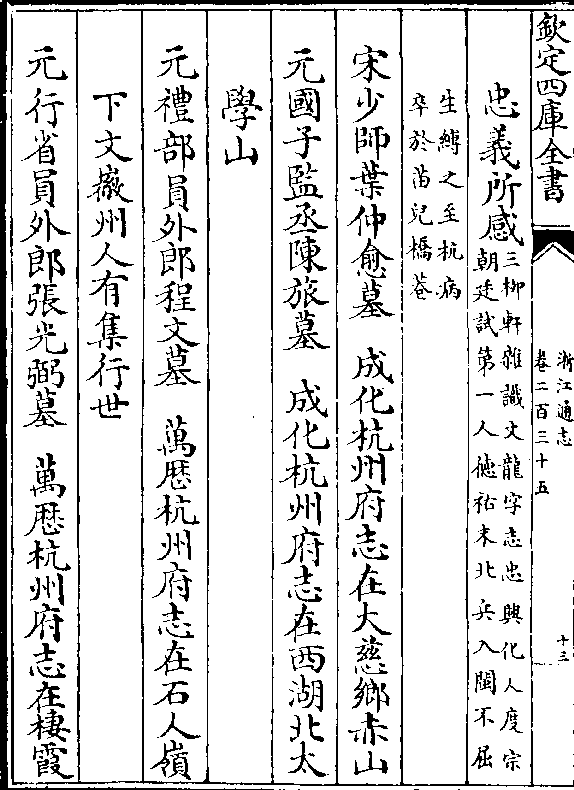 欽定四庫全書
浙江通志
卷二百三十五
十三
忠義所感
三柳軒雜識文龍字志忠興化人度宗
朝廷試第一人德祐末北兵入閩不屈
生縛之至杭病
卒於苗兒橋菴
宋少師葉仲愈墓　成化杭州府志在大慈鄉赤山
元國子監丞陳旅墓　成化杭州府志在西湖北太
學山
元禮部員外郎程文墓　萬厯杭州府志在石人嶺
下文㿖州人有集行世
元行省員外郎張光弼墓　萬厯杭州府志在棲霞